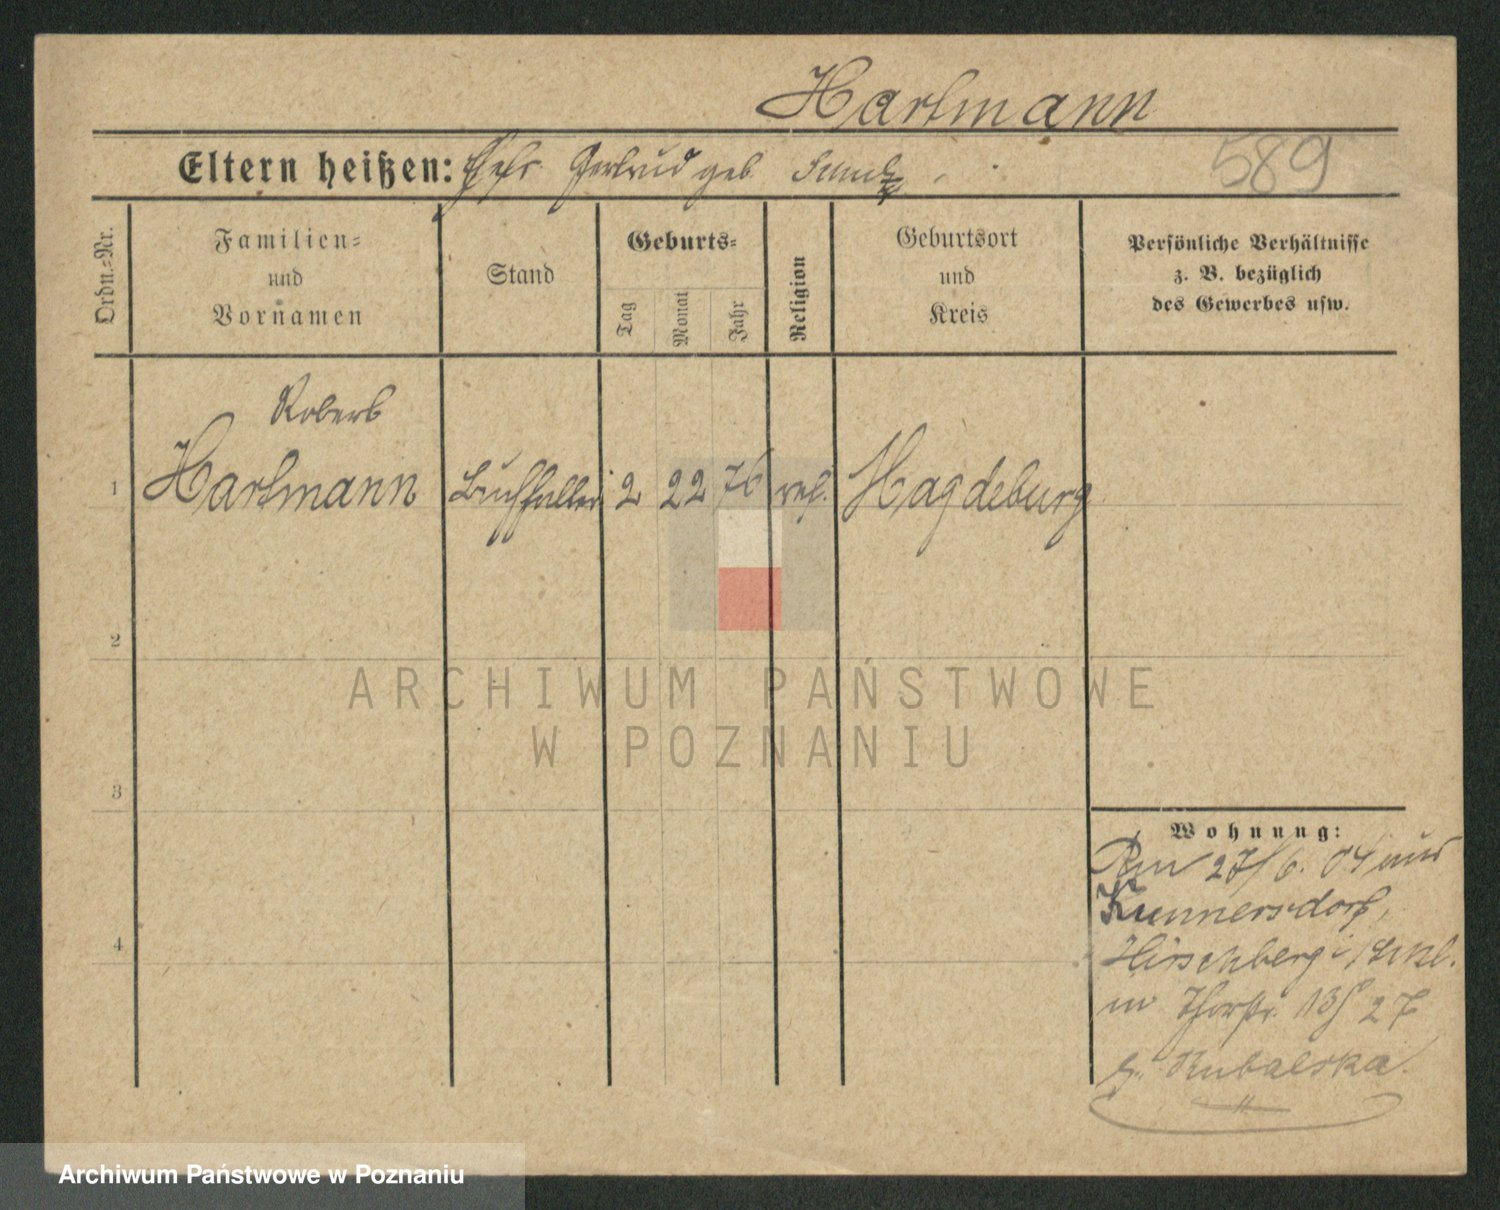 Hartmann
Eltern heißen: Gertrud geb.
589
Ordn.-Nr.
Familien-
und
Vornamen
Stand
Geburts-
Tag
Monat
Jahr
Religion
Geburtsort
und
Kreis
Persönliche Verhältnisse
z. B. bezüglich
des Gewerbes usw.
Robert
1 Hartmann Buchhalter 2 22 76 ref. Magdeburg
2
3
4
Wohnung:
27/6. 04 aus
Kunnersdorf,
Hirschberg i/Schl.
in Thorstr. 13/ 27
Rubalska
ARCHIWUM PAŃSTWOWE
W POZNANIU
Archiwum Państwowe w Poznaniu